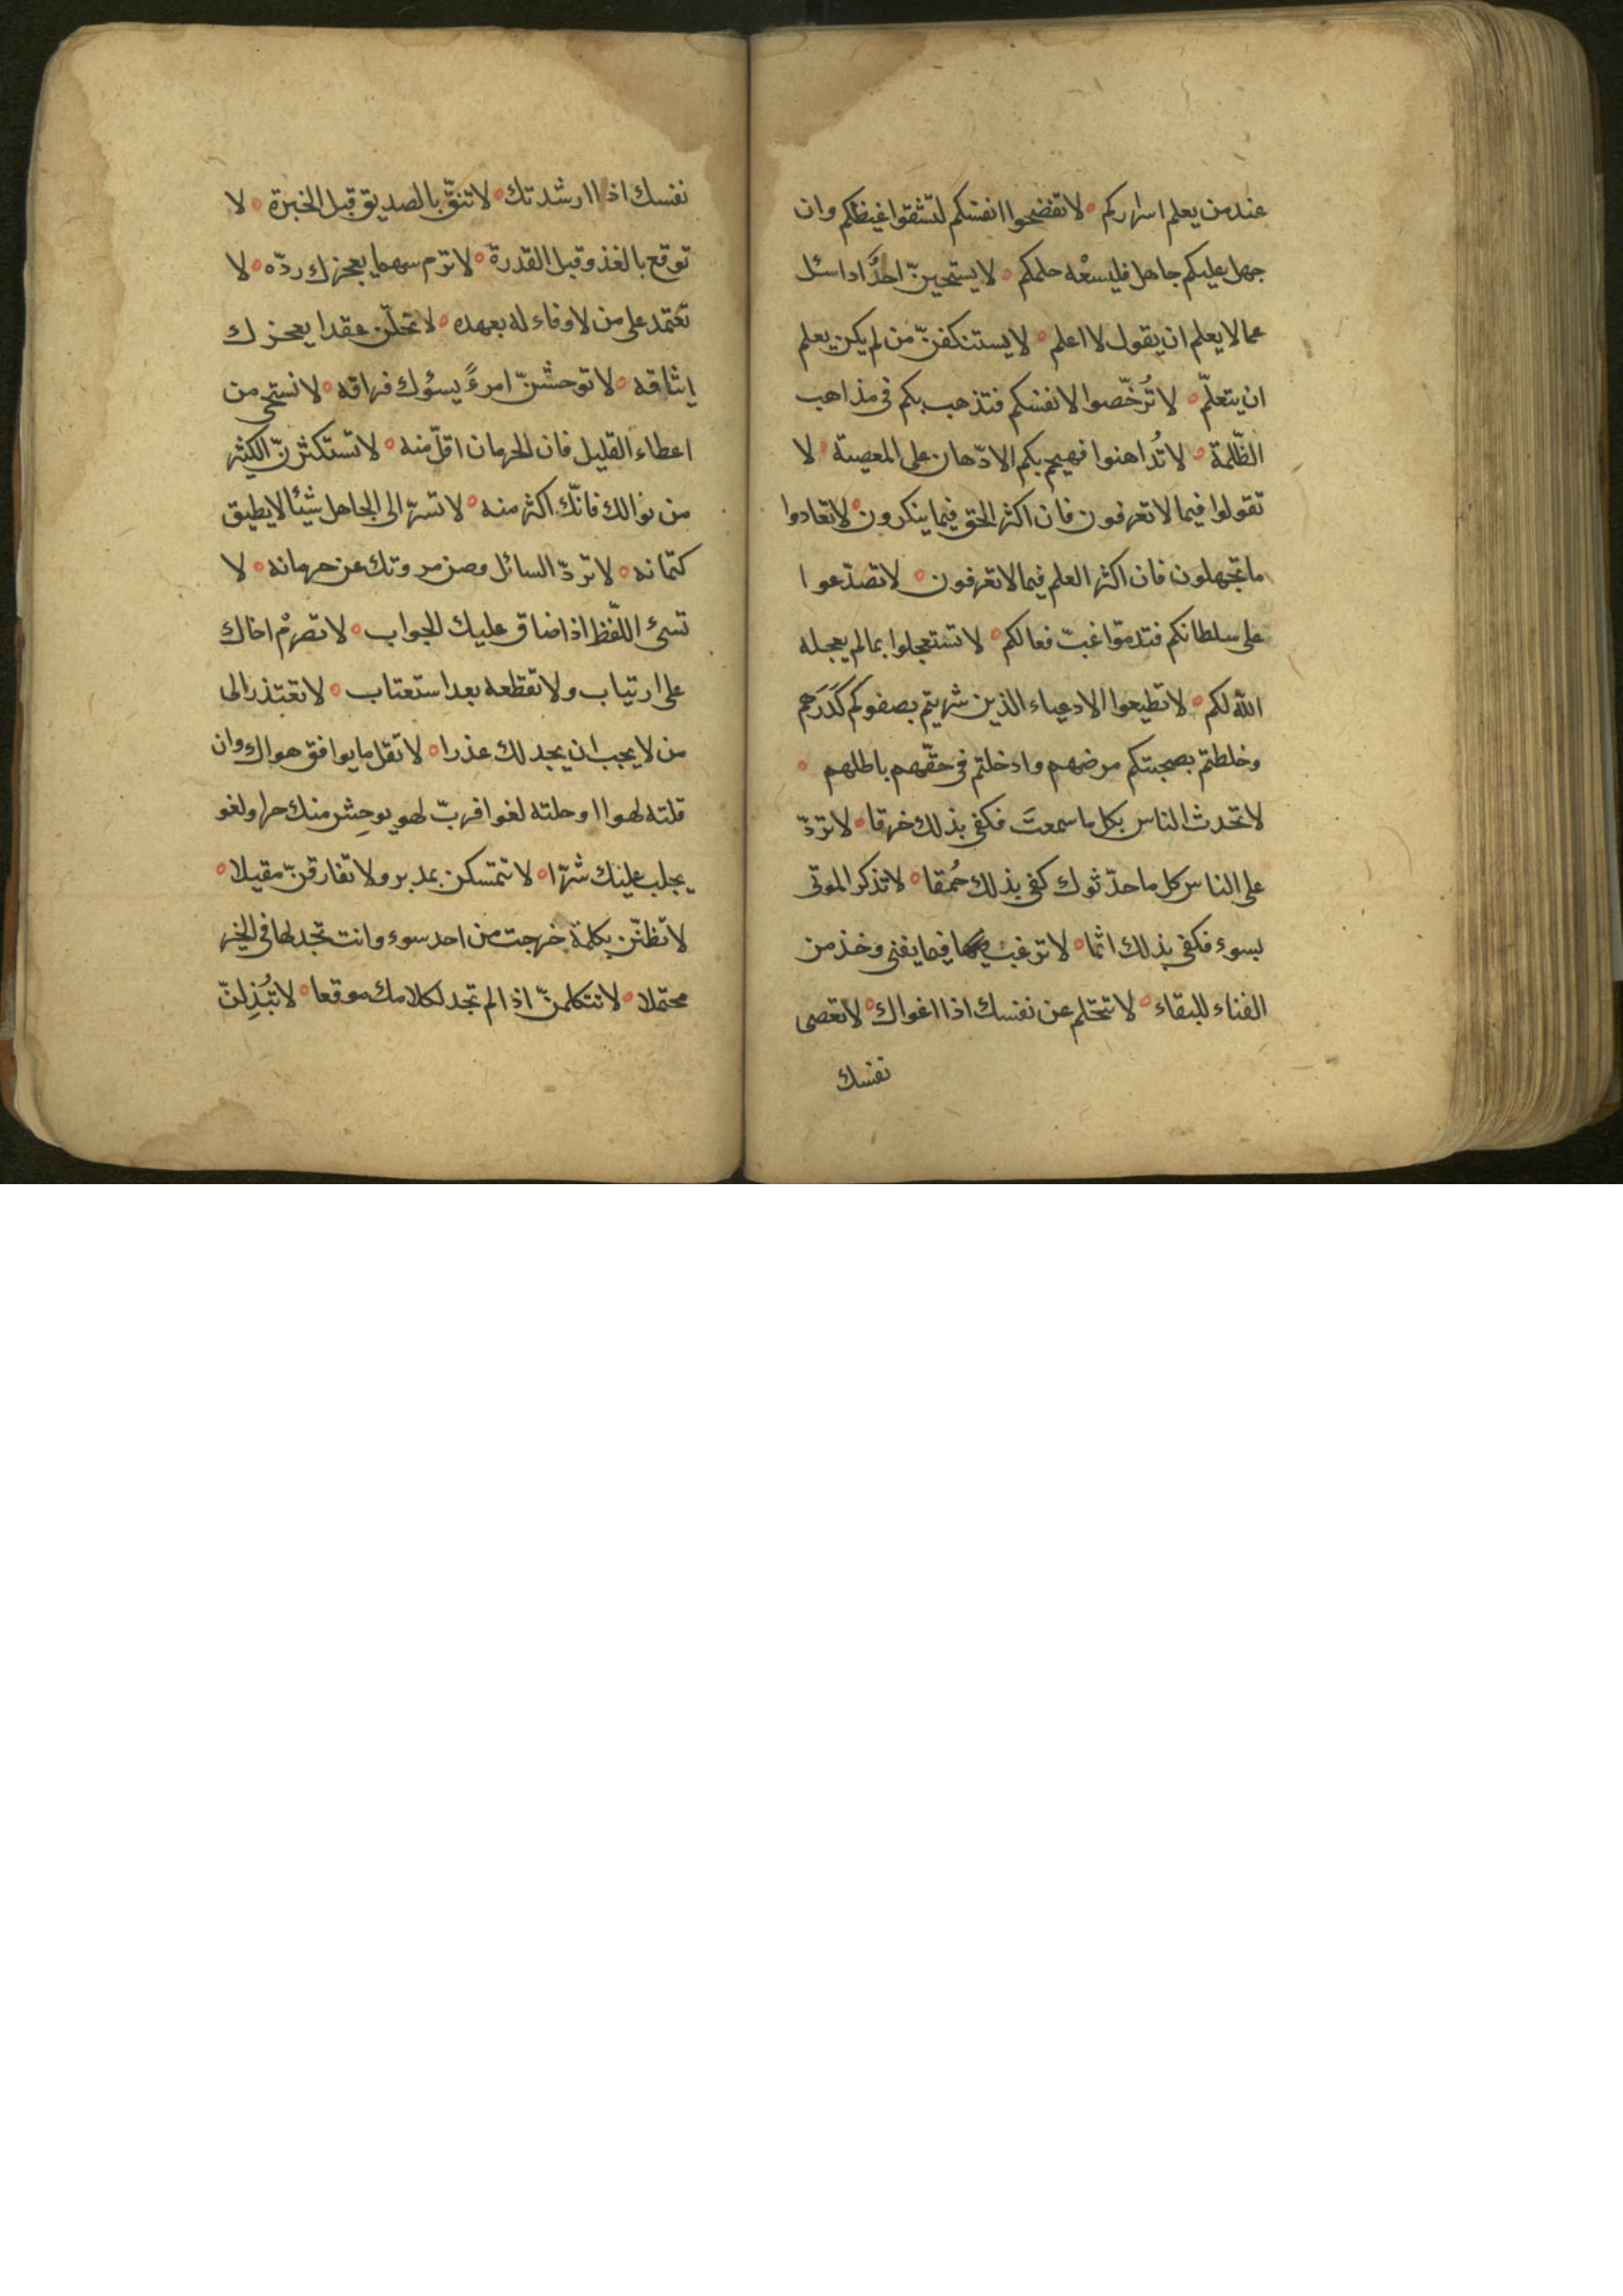 عند من يعلم اسراركم ۰ لا تفضحوا انفسكم لتشفوا غيظكم وان
جهل عليكم جاهل فليسعْه حلمكم ۰ لا يستحينّ احدٌ اذا سئل
عما لا يعلم ان يقول لا اعلم ۰ لا يستنكفنّ من لم يكن يعلم
ان يتعلّم ۰ لا تُرخّصوا لانفسكم فتذهب بكم فى مذاهب
الظّلمة ۰ لا تُداهنوا فيهجم بكم الادّهان على المعصية ۰ لا
تقولوا فيما لا تعرفون فان اكثر الحق فيما ينكرون ۰ لا تعادوا
ما تجهلون فان اكثر العلم فيما لا تعرفون ۰ لا تصدّعوا
على سلطانكم فتذموّا غبّ فعالكم ۰ لا تستعجلوا بما لم يعجله
الله لكم ۰ لا تطيعوا الادعياء الذين شربتم بصفوكم كَدَرَهم
وخلطتم بصحبتكم مرضهم وادخلتم فى حقّهم باطلهم ۰
لا تحدث الناس بكل ما سمعتَ فكفى بذلك خرقا ۰ لا تردّ
على الناس كل ما حدّثوك كفى بذلك حُمقا ۰ لا تذكر الموتى
بسوء فكفى بذلك اثما ۰ لا ترغب فيما يفنى وخذ من
الفناء للبقاء ۰ لا تتحلم عن نفسك اذا اغواك ۰ لا تعصى
نفسك
نفسك اذا ارشدتك ۰ لا تثقّ بالصديق قبل الخبرة ۰ لا
توقع بالغدو قبل القدرة ۰ لا ترم سهما يعجزك ردّه ۰ لا
تعتمد على من لا وفاء له بعهده ۰ لا تحلّن عقدا يعجزك
ايثاقه ۰ لا توحشنّ امرءً يسؤك فراقه ۰ لا تستحى من
اعطاء القليل فان الحرمان اقلّ منه ۰ لا تستكثرنّ الكثير
من نوالك فانّك اكثر منه ۰ لا تسرّ الى الجاهل شيئا لا يطيق
كتمانه ۰ لا تردّ السائل وصن مروتك عن حرمانه ۰ لا
تسئ اللّفظ اذا ضاق عليك الجواب ۰ لا تصرمْ اخاك
على ارتياب ولا تقطعه بعد استعتاب ۰ لا تعتذر الى
من لا يحب ان يجد لك عذرا ۰ لا تقل ما يوافق هواك وان
قلته لهوا او خلته لغوا فربّ لهو يوحِش منك حرا ولغو
يجلب عليك شرّا ۰ لا تتمسكن بمدبر ولا تفارقنّ مقبلا ۰
لا تظنّن بكلمة خرجت من احد سوء وانت تجد لها فى الخير
محتملا ۰ لا تتكلمنّ اذا لم تجد لكلامك موقعا ۰ لا تبُذِلنّ